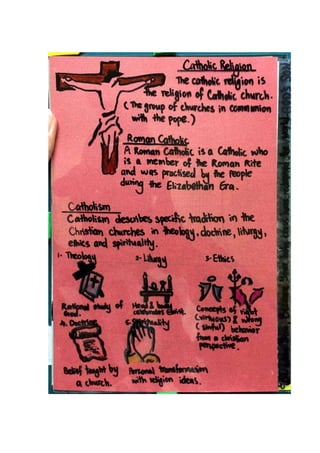 Catholic Religion
The catholic religion is
the religion of Catholic church.
(The group of churches in communion
with the pope.)
Roman Catholic
A Roman Catholic is a Catholic who
is a member of the Roman Rite
and was practised by the people
during the Elizabethan Era.
Catholism
Catholism describes specific tradition in the
Christian churches in theology, doctrine, liturgy,
ethics and spirituality.
1. Theology 2. Liturgy 3. Ethics
Rational study of
God.
Head & body
celebrates
Concepts of right
(virtuous) & wrong
(sinful) behavior
from a christian
perspective.
4. Doctrine 5. Spirituality
Belief taught by
a church.
Personal transformation
with religion ideas.